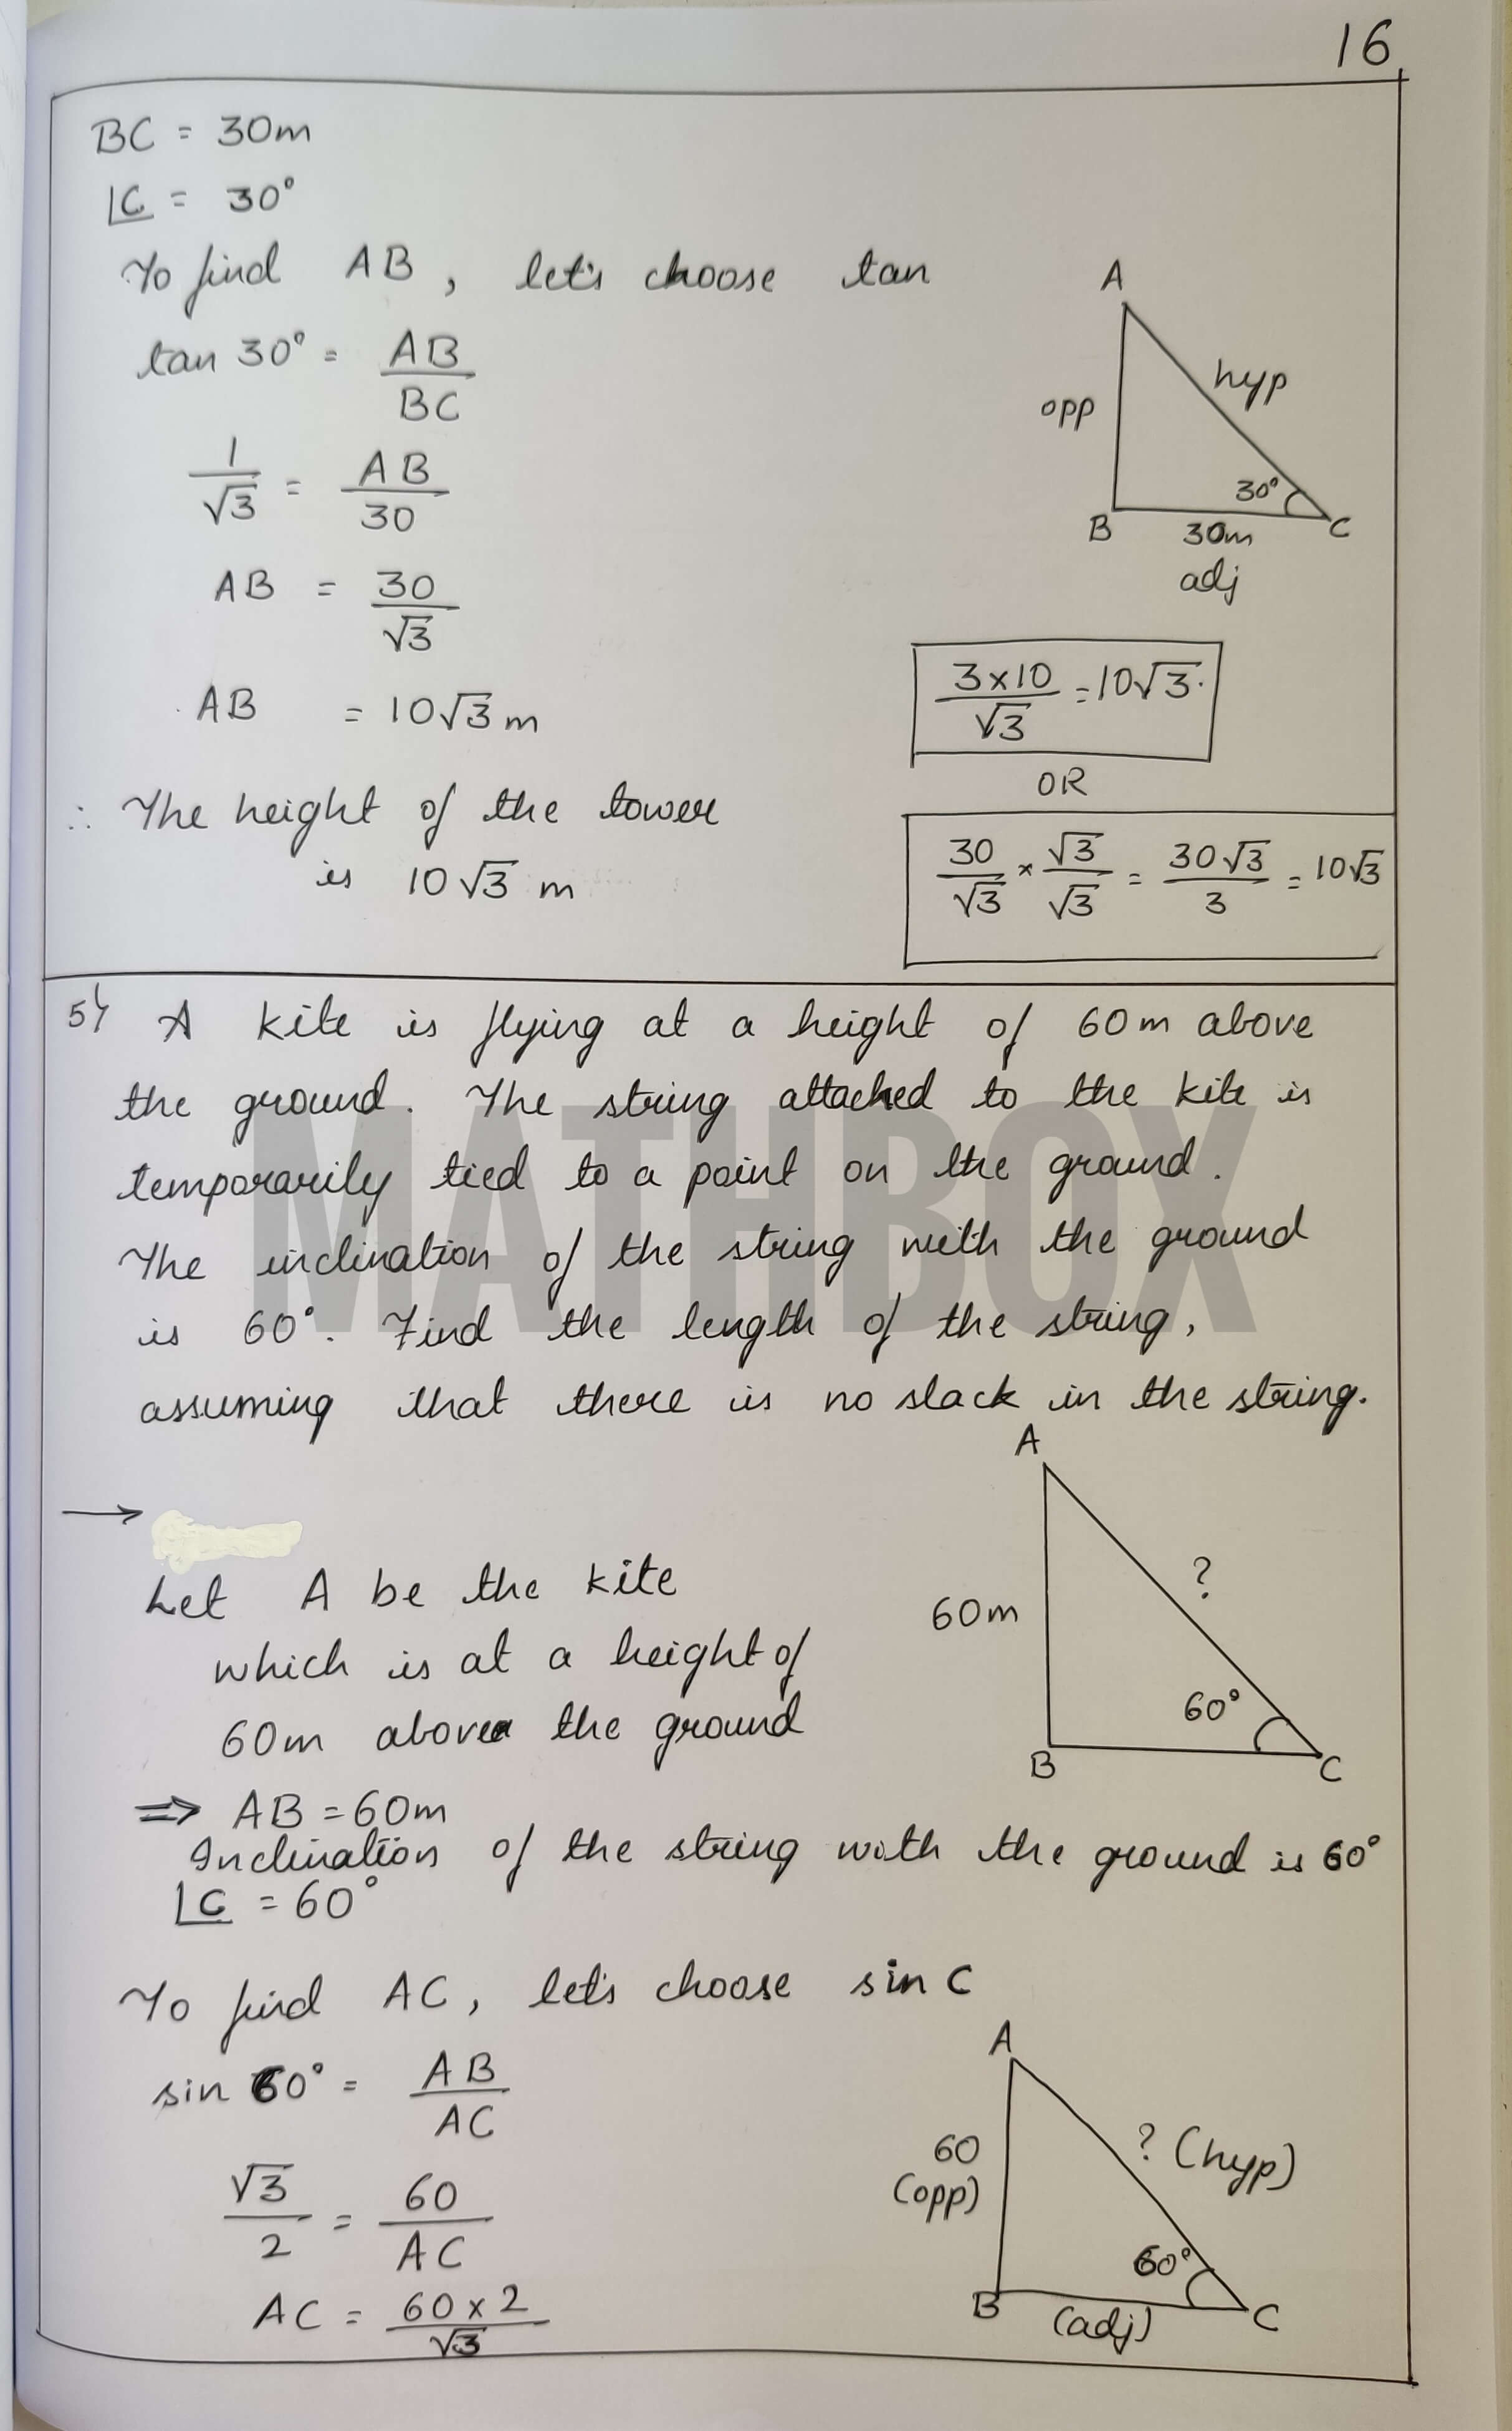 16
BC = 30m
∠C = 30°
To find AB, let's choose tan
tan 30° = AB/BC
1/√3 = AB/30
AB = 30/√3
AB = 10√3 m
∴ The height of the tower
is 10√3 m
A
opp
hyp
30°
B 30m C
adj
3×10/√3 = 10√3.
OR
30/√3 × √3/√3 = 30√3/3 = 10√3
5) A kite is flying at a height of 60m above
the ground. The string attached to the kite is
temporarily tied to a point on the ground.
The inclination of the string with the ground
is 60°. Find the length of the string,
assuming that there is no slack in the string.
MATHBOX
→
Let A be the kite
which is at a height of
60m above the ground
⇒ AB = 60m
A
60m
?
60°
B C
Inclination of the string with the ground is 60°
∠C = 60°
To find AC, let's choose sin C
sin 60° = AB/AC
√3/2 = 60/AC
AC = 60 × 2/√3
A
60
(opp)
? (hyp)
60°
B (adj) C